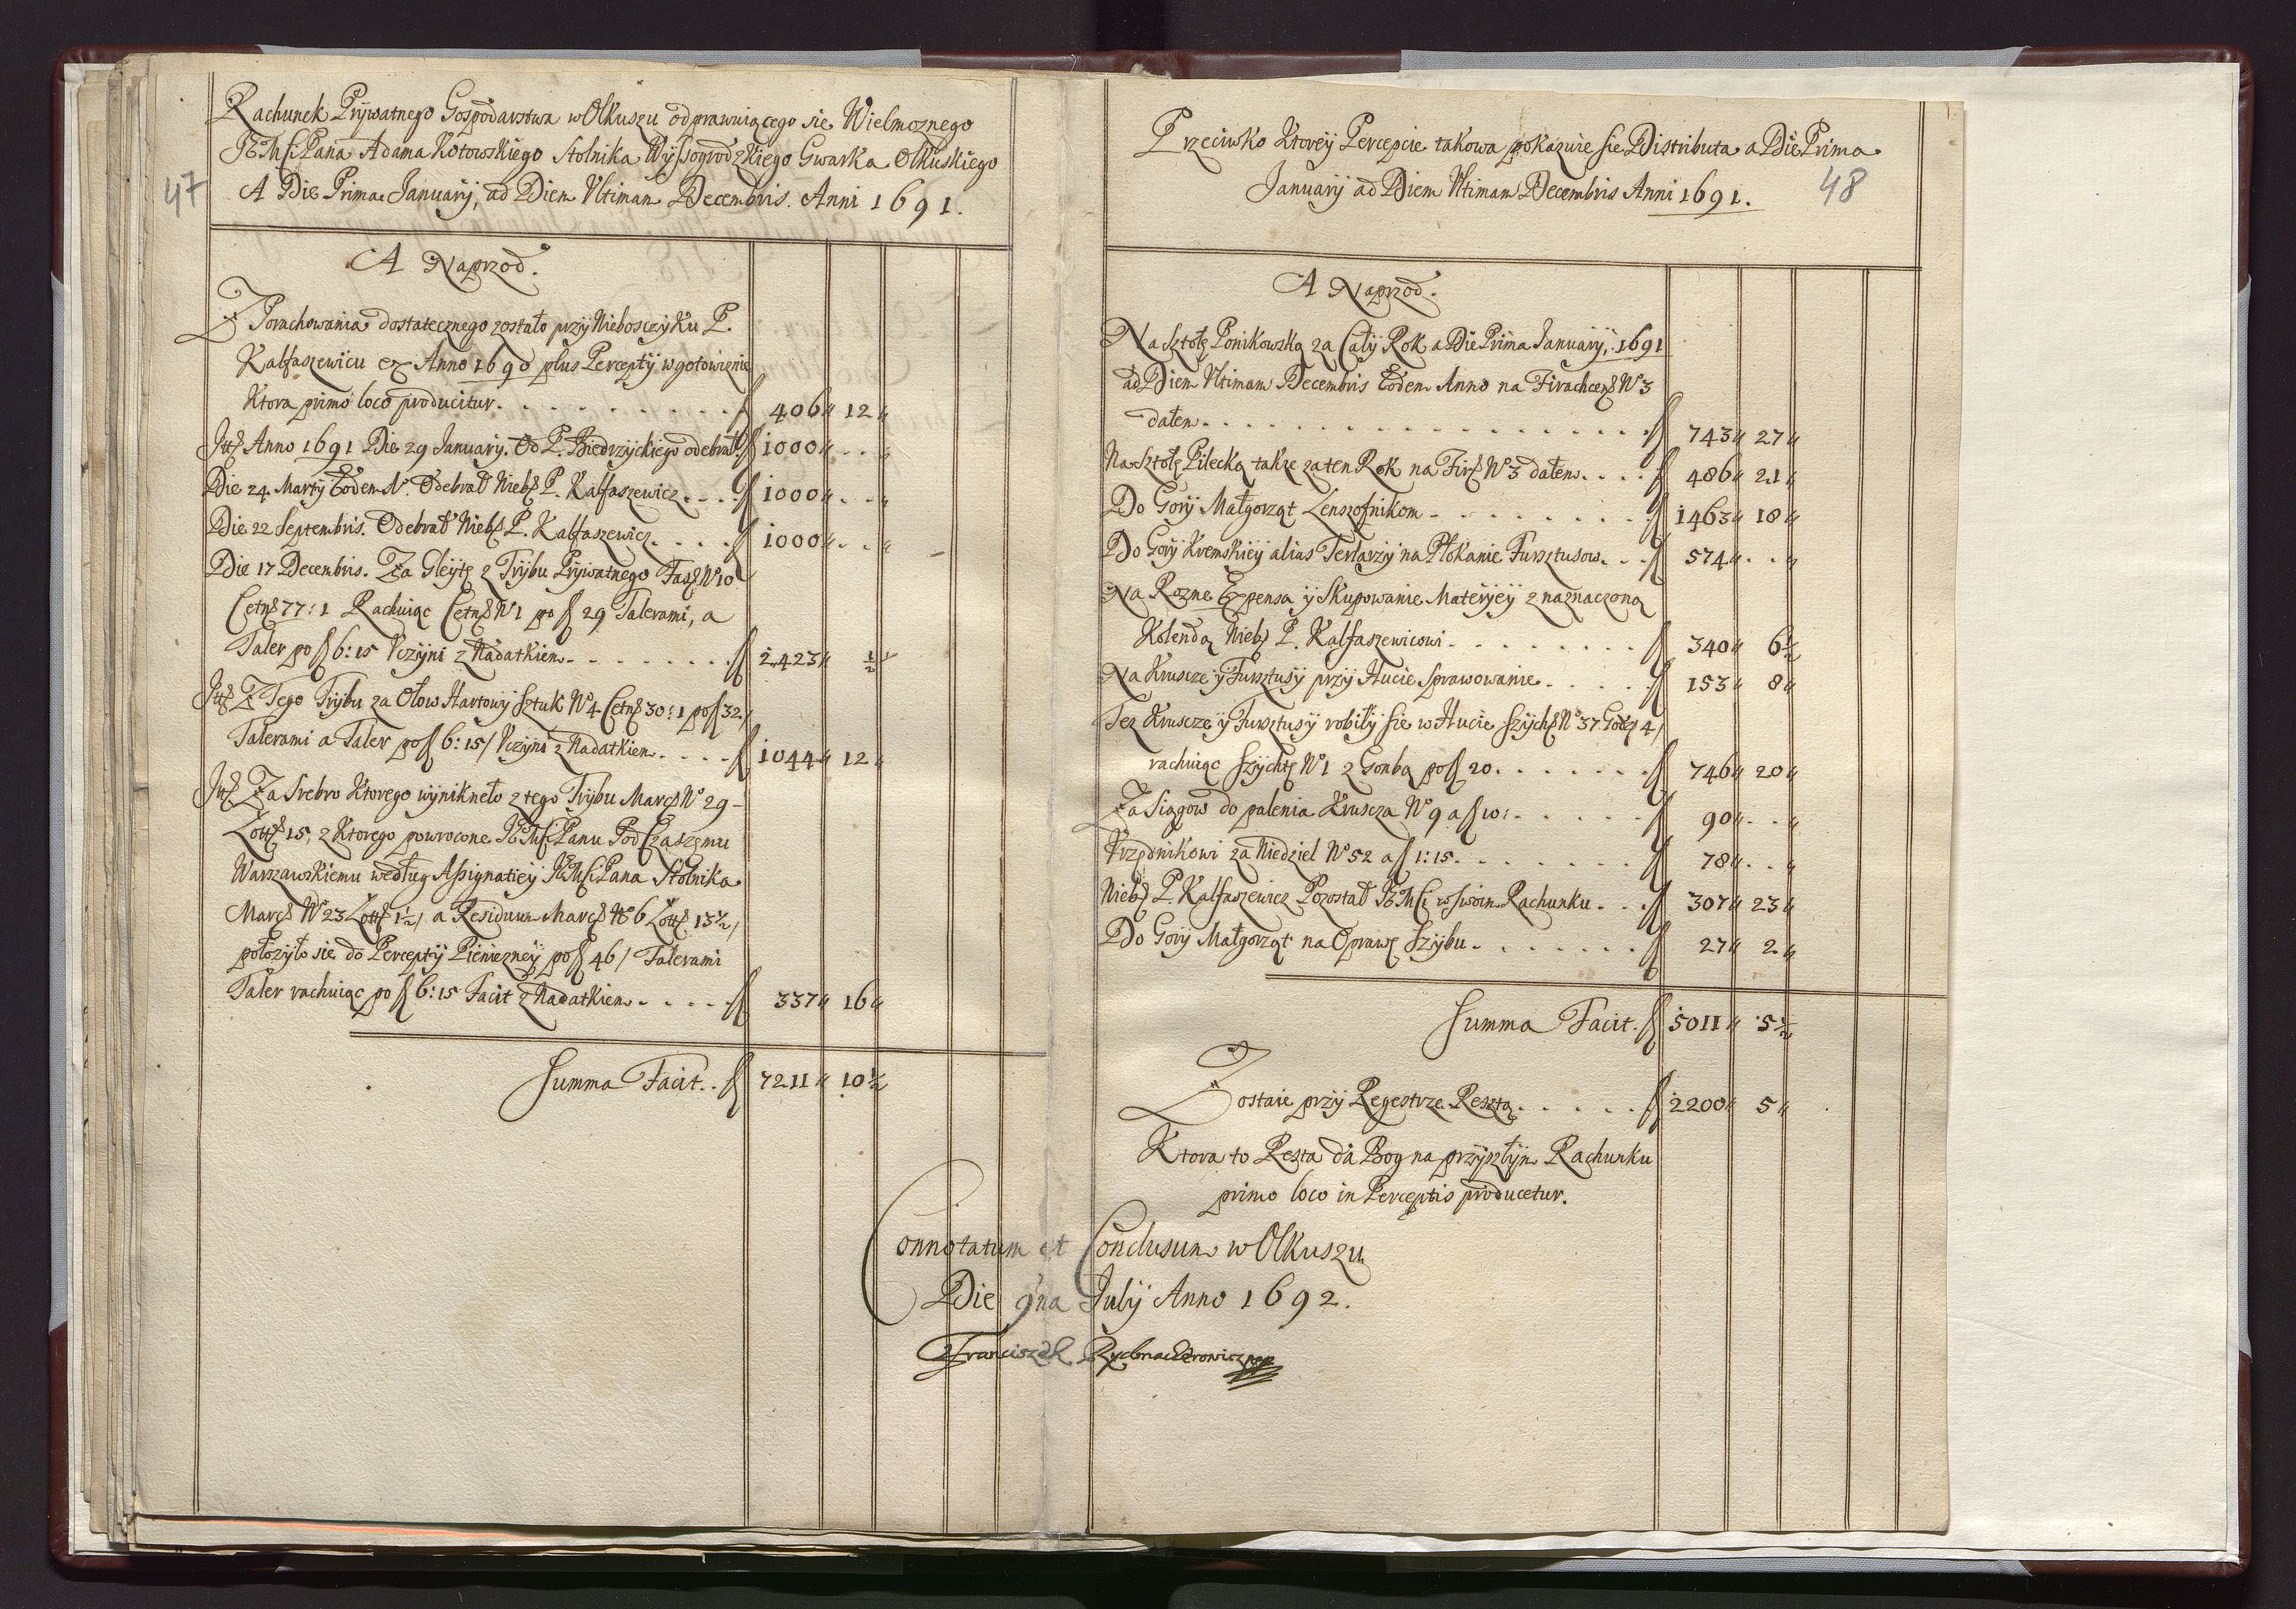 Rachunek Prÿwatnego Gospodarstwa w Olkuszu odprawuiącego sie Wielmoznego
JEMSCi Pana Adama Kotowskiego Stolnika Wÿssogrodzkiego Gwarka Olkuskiego
47
A Die Prima Januarÿ, ad Diem Vltiman Decembris. Anni 1691.
A Naprzod.
Z Porachowania dostatecznego zostało przÿ Nieboscżÿku P.
Kalfaszewicu ex Anno 1690 plus Perceptÿ w gotowiznie
Ktora primo loco producitur. f 406 12
Itt Anno 1691 Die 29 Januarÿ. Od P. Biedrzÿckiego odebrał f 1000
Die 24. Martÿ Eodem A. Odebrał Nieb P. Kalfaszewicz f 1000
Die 22 Septembris. Odebrał Nieb P. Kalfaszewicz f 1000
Die 17 Decembris. Za Gleÿtę z Trÿbu Prÿwatnego Fasz No 10
Cetn 77:1 Rachuiąc Cetn No 1 po f 29 Talerami, a
Taler po f 6:15 Vczÿni z Nadatkiem f 2423 ½
Itt Z Tego Trÿbu za Ołow Hartowÿ Sztuk No 4 Cetn 30:1 po f 32/
Talerami a Taler po f 6:15/ Vczÿni z Nadatkiem f 1044 12
Itt Za Srebro Ktorego wÿnikneło z tego Trÿbu Marc No 29
Lott 15, z Ktorego powrocone JEMSCi Panu PodCzaszemu
Warszawskiemu według Assignatieÿ JEMSCi Pana Stolnika
Marc No 23 Lott 1½/ a Residuum Marc No 6 Lott 13½/
położÿło sie do Perceptÿ Pieniezneÿ po f 46/ Talerami
Taler rachuiąc po f 6:15 Facit z Nadatkiem f 337 16
Summa Facit f 7211 10½
Przeciwko Ktoreÿ Percepcie takowa pokazuie sie Distributa a Die Prima
Januarÿ ad Diem Vltimam Decembris Anni 1691.
48
A Naprzod.
Na Sztolę Ponikowską za Całÿ Rok a Die Prima Januarÿ, 1691
ad Diem Vltimam Decembris Eodem Anno na No 3
dałem f 743 27
Na Sztolę Pilecką takze za ten Rok na No 3 dałem f 486 21
Do Gorÿ Małgorząt Lenszofnikom f 1463 18
Do Gorÿ Kremskieÿ alias Terlarzÿ na Płokanie Fursztusow f 574
Na Rozne Expensa ÿ Skupowanie Materÿeÿ z naznaczoną
Kolendą Nieb P. Kalfaszewicowi f 340 6½
Na Kruscze ÿ Fursztusÿ przÿ Hucie Sprawowanie f 153 8
Tez Kruscze ÿ Fursztusÿ robiłÿ sie w Hucie Szÿch No 37 Godz 4/
rachuiąc Szÿchtę No 1 z Gonbą po f 20 f 746 20
Za Siągow do palenia Kruscza No 9 a f 10: f 90
Vrzędnikowi za Niedziel No 52 a f 1:15. f 78
Nieb P. Kalfaszewicz Pozostał JEMSCi w swoim Rachunku f 307 23
Do Gorÿ Małgorząt na Oprawę Szÿbu f 27 2
Summa Facit. f 5011 5½
Zostaie przÿ Regestrze Resztą f 2200 5
Ktora to Reszta da Bog na przÿszłÿm Rachunku
primo loco in Perceptis producetur.
Connotatum et Conclusum w Olkuszu
Die 9na Julÿ Anno 1692.
Franciszek